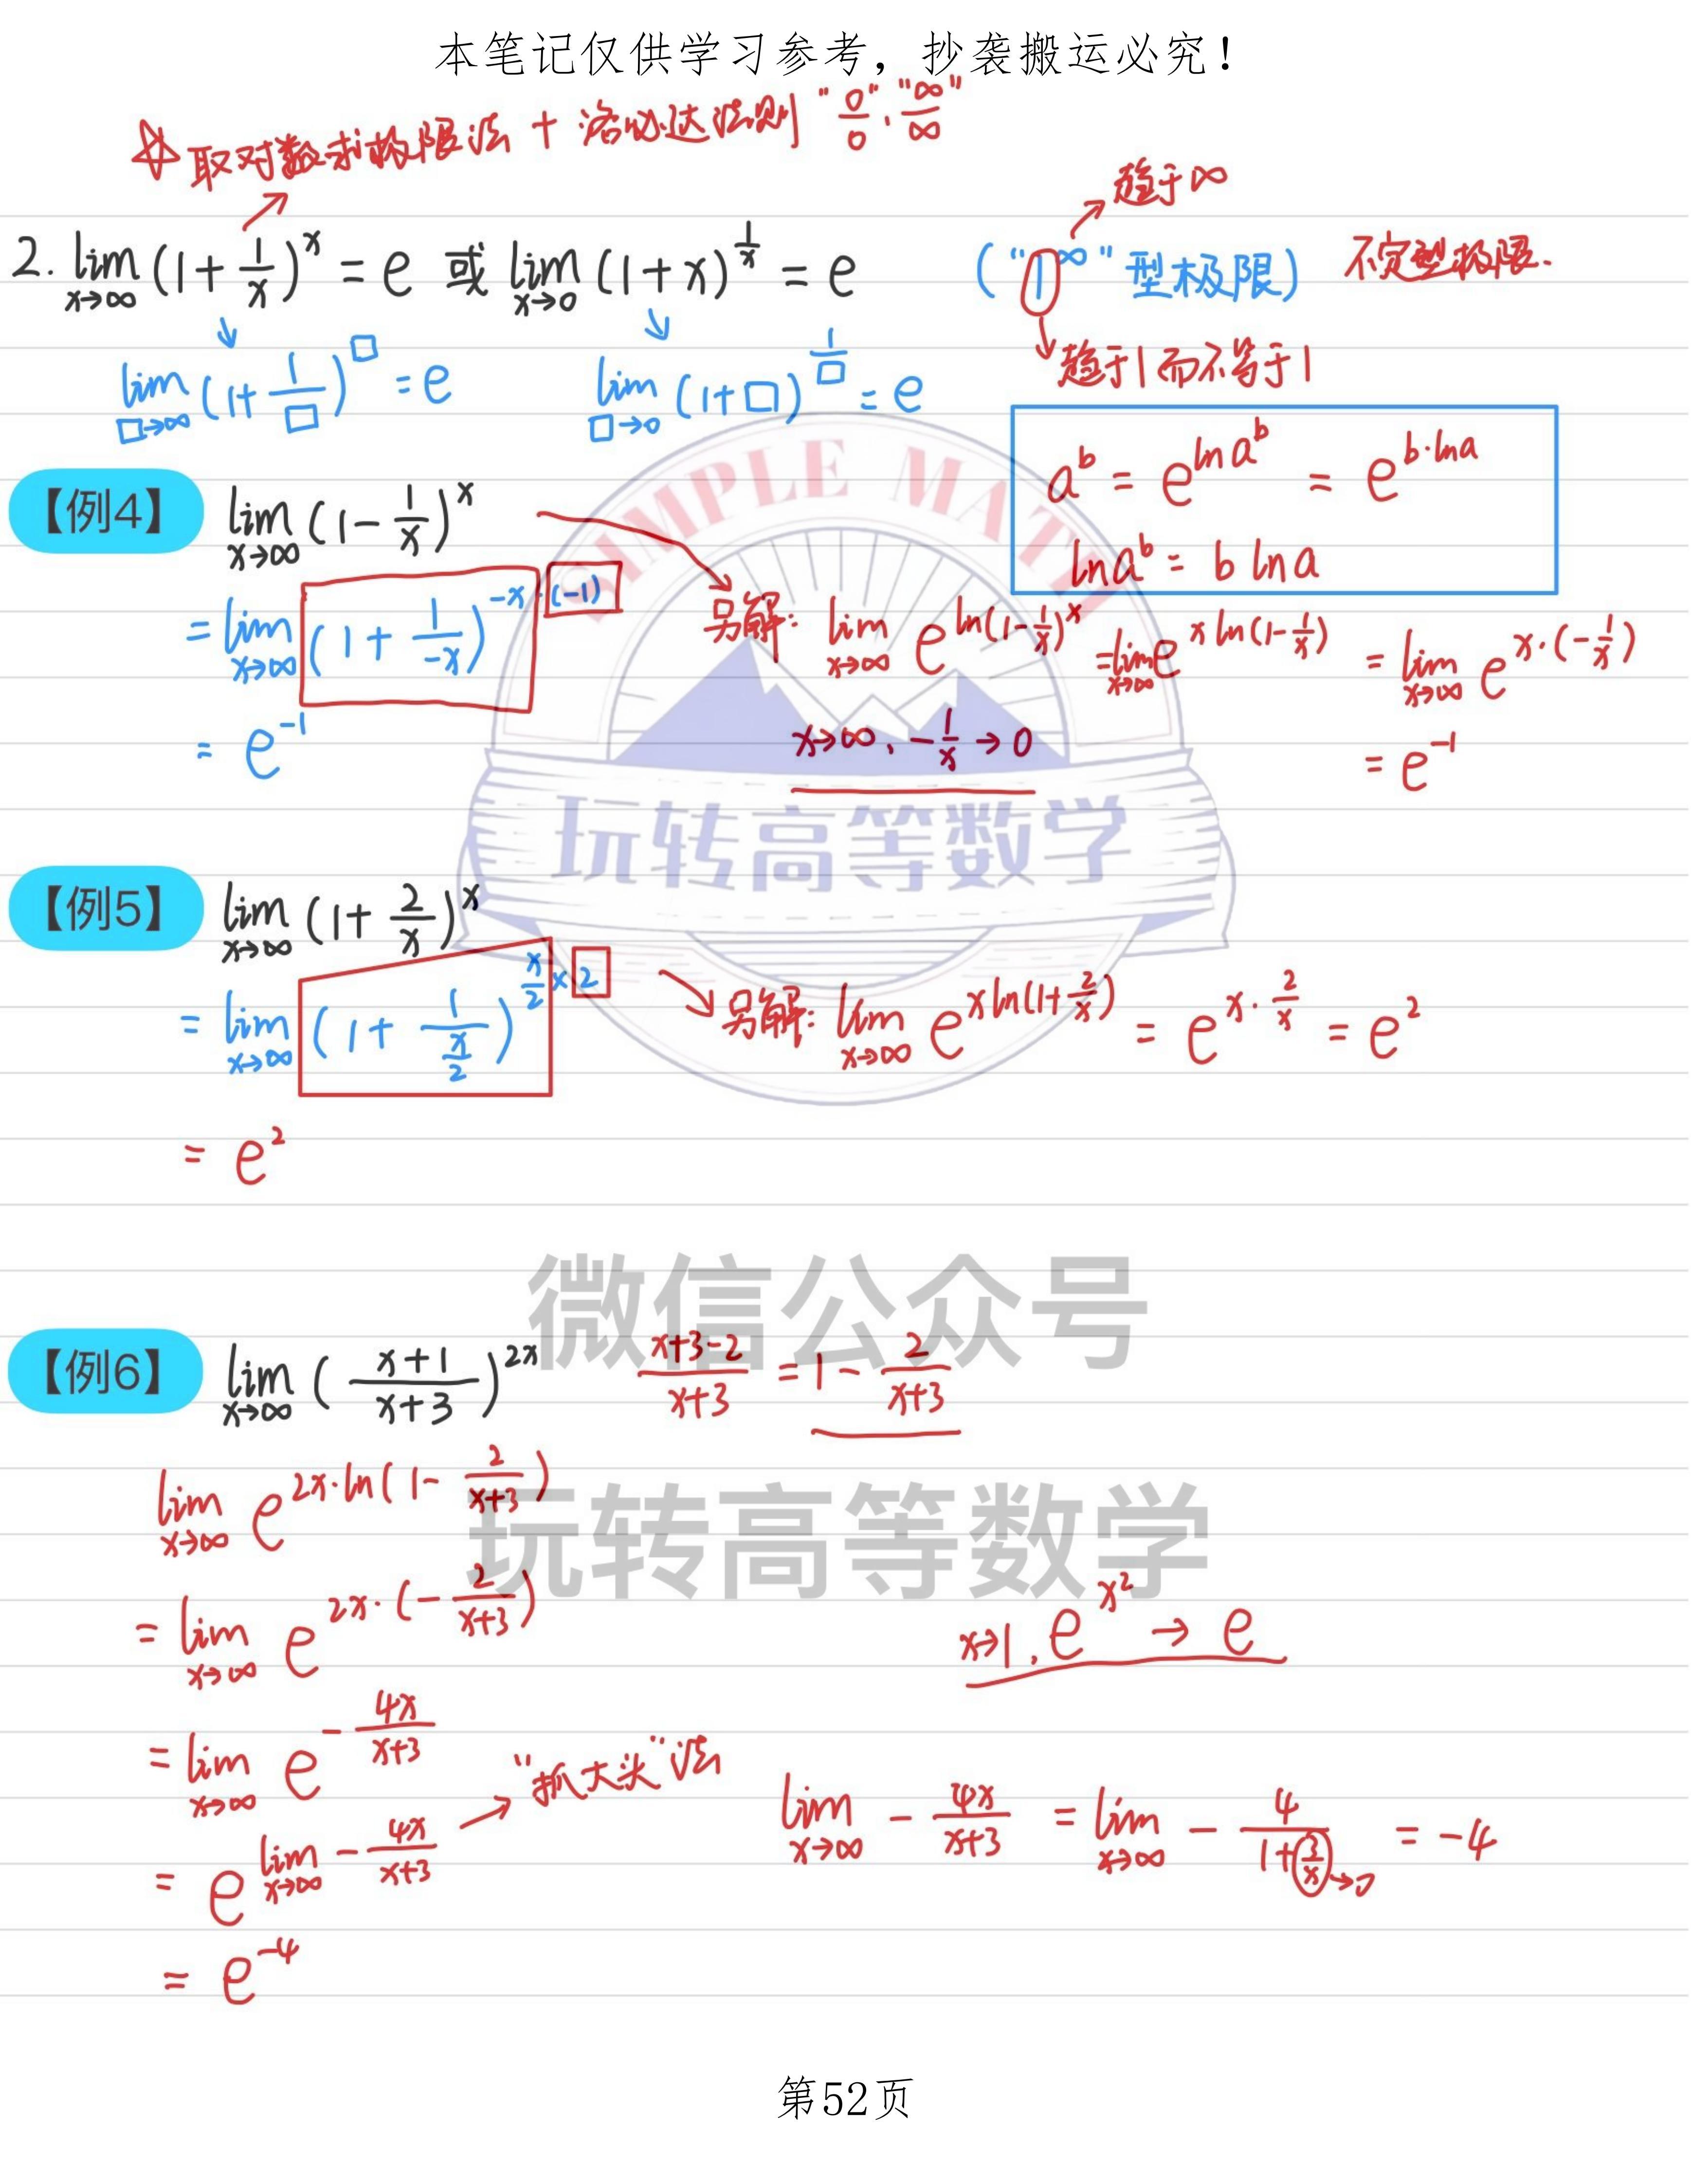 本笔记仅供学习参考，抄袭搬运必究！
☆取对数求极限法 + 洛必达法则 "0/0"、"∞/∞"
趋于∞
2. lim_{x→∞} (1+1/x)^x = e 或 lim_{x→0} (1+x)^{1/x} = e ("1^∞"型极限) 不定型极限.
趋于1而不等于1
lim_{□→∞} (1+1/□)^□ = e lim_{□→0} (1+□)^{1/□} = e
a^b = e^{ln a^b} = e^{b·ln a}
ln a^b = b ln a
【例4】 lim_{x→∞} (1-1/x)^x
= lim_{x→∞} (1+1/(-x))^{-x·(-1)}
= e^{-1}
另解: lim_{x→∞} e^{ln(1-1/x)^x} = lim_{x→∞} e^{x ln(1-1/x)} = lim_{x→∞} e^{x·(-1/x)}
x→∞、-1/x→0
= e^{-1}
SIMPLE MATH
玩转高等数学
【例5】 lim_{x→∞} (1+2/x)^x
= lim_{x→∞} (1+1/(x/2))^{x/2×2}
另解: lim_{x→∞} e^{x ln(1+2/x)} = e^{x·2/x} = e^2
= e^2
微信公众号
【例6】 lim_{x→∞} ((x+1)/(x+3))^{2x} (x+3-2)/(x+3) = 1-2/(x+3)
lim_{x→∞} e^{2x·ln(1-2/(x+3))}
玩转高等数学
= lim_{x→∞} e^{2x·(-2/(x+3))}
x→1, e^{x^2} → e
= lim_{x→∞} e^{-4x/(x+3)}
= e^{lim_{x→∞} -4x/(x+3)} "抓大头"法
lim_{x→∞} -4x/(x+3) = lim_{x→∞} -4/(1+3/x) = -4
3/x→0
= e^{-4}
第52页